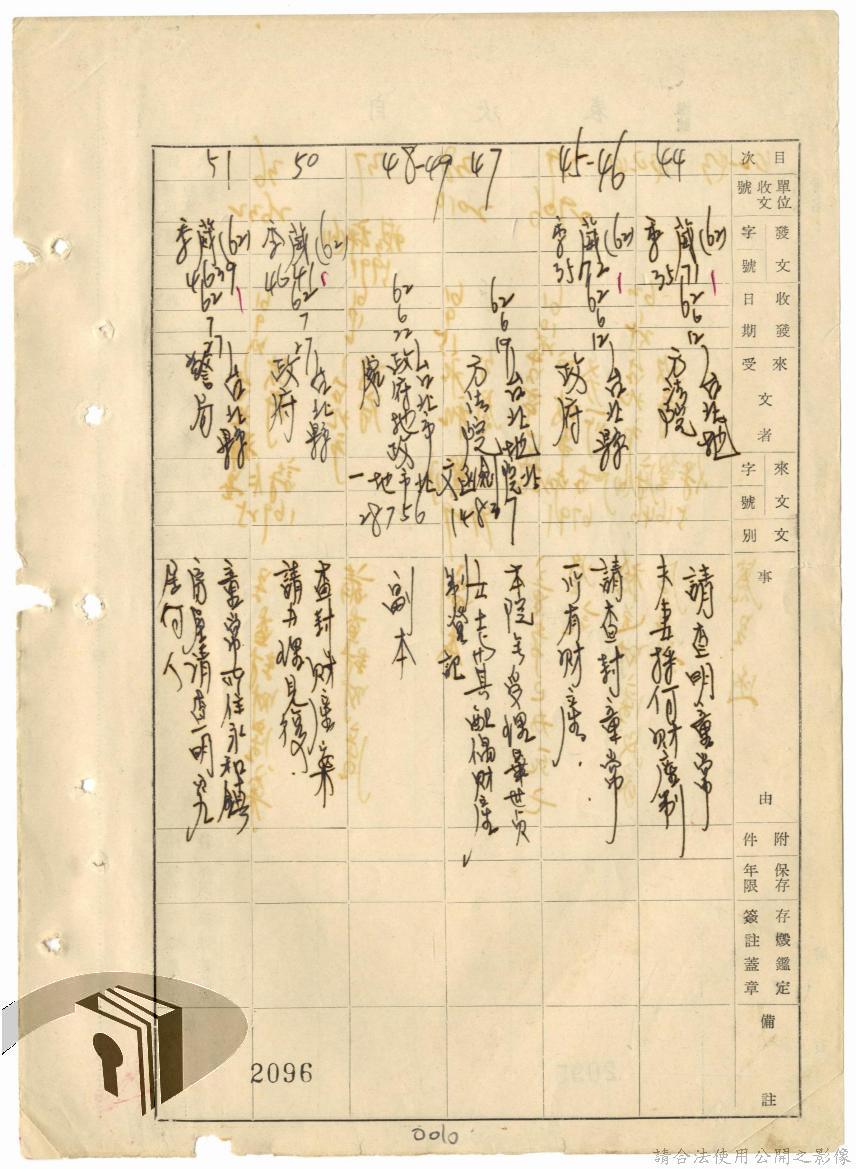 目次
單位收文號
發文字號
收發日期
來受文者
來文字號
文別
事由
附件
保存年限
存燬鑑定簽註蓋章
備註
44
(62)
3571
62
6
12
台北地
方法院
請查明童常
夫妻採何財產制
45-46
(62)
3572
62
6
12
台北縣
政府
請查封童常
所有財產
47
62
6
19
台北地
方法院
北院
文
14837
本院無受理
夫妻財產
制登記
48-49
62
6
22
台北市
政府地政
處
北市
一地
28756
副本
50
(62)
4641
62
7
27
台北縣
政府
查封財產案
請办理見復
51
(62)
4639
62
7
27
台北縣
警局
童常所住永和鎮
房屋請查明究
居何人
2096
0010
請合法使用公開之影像